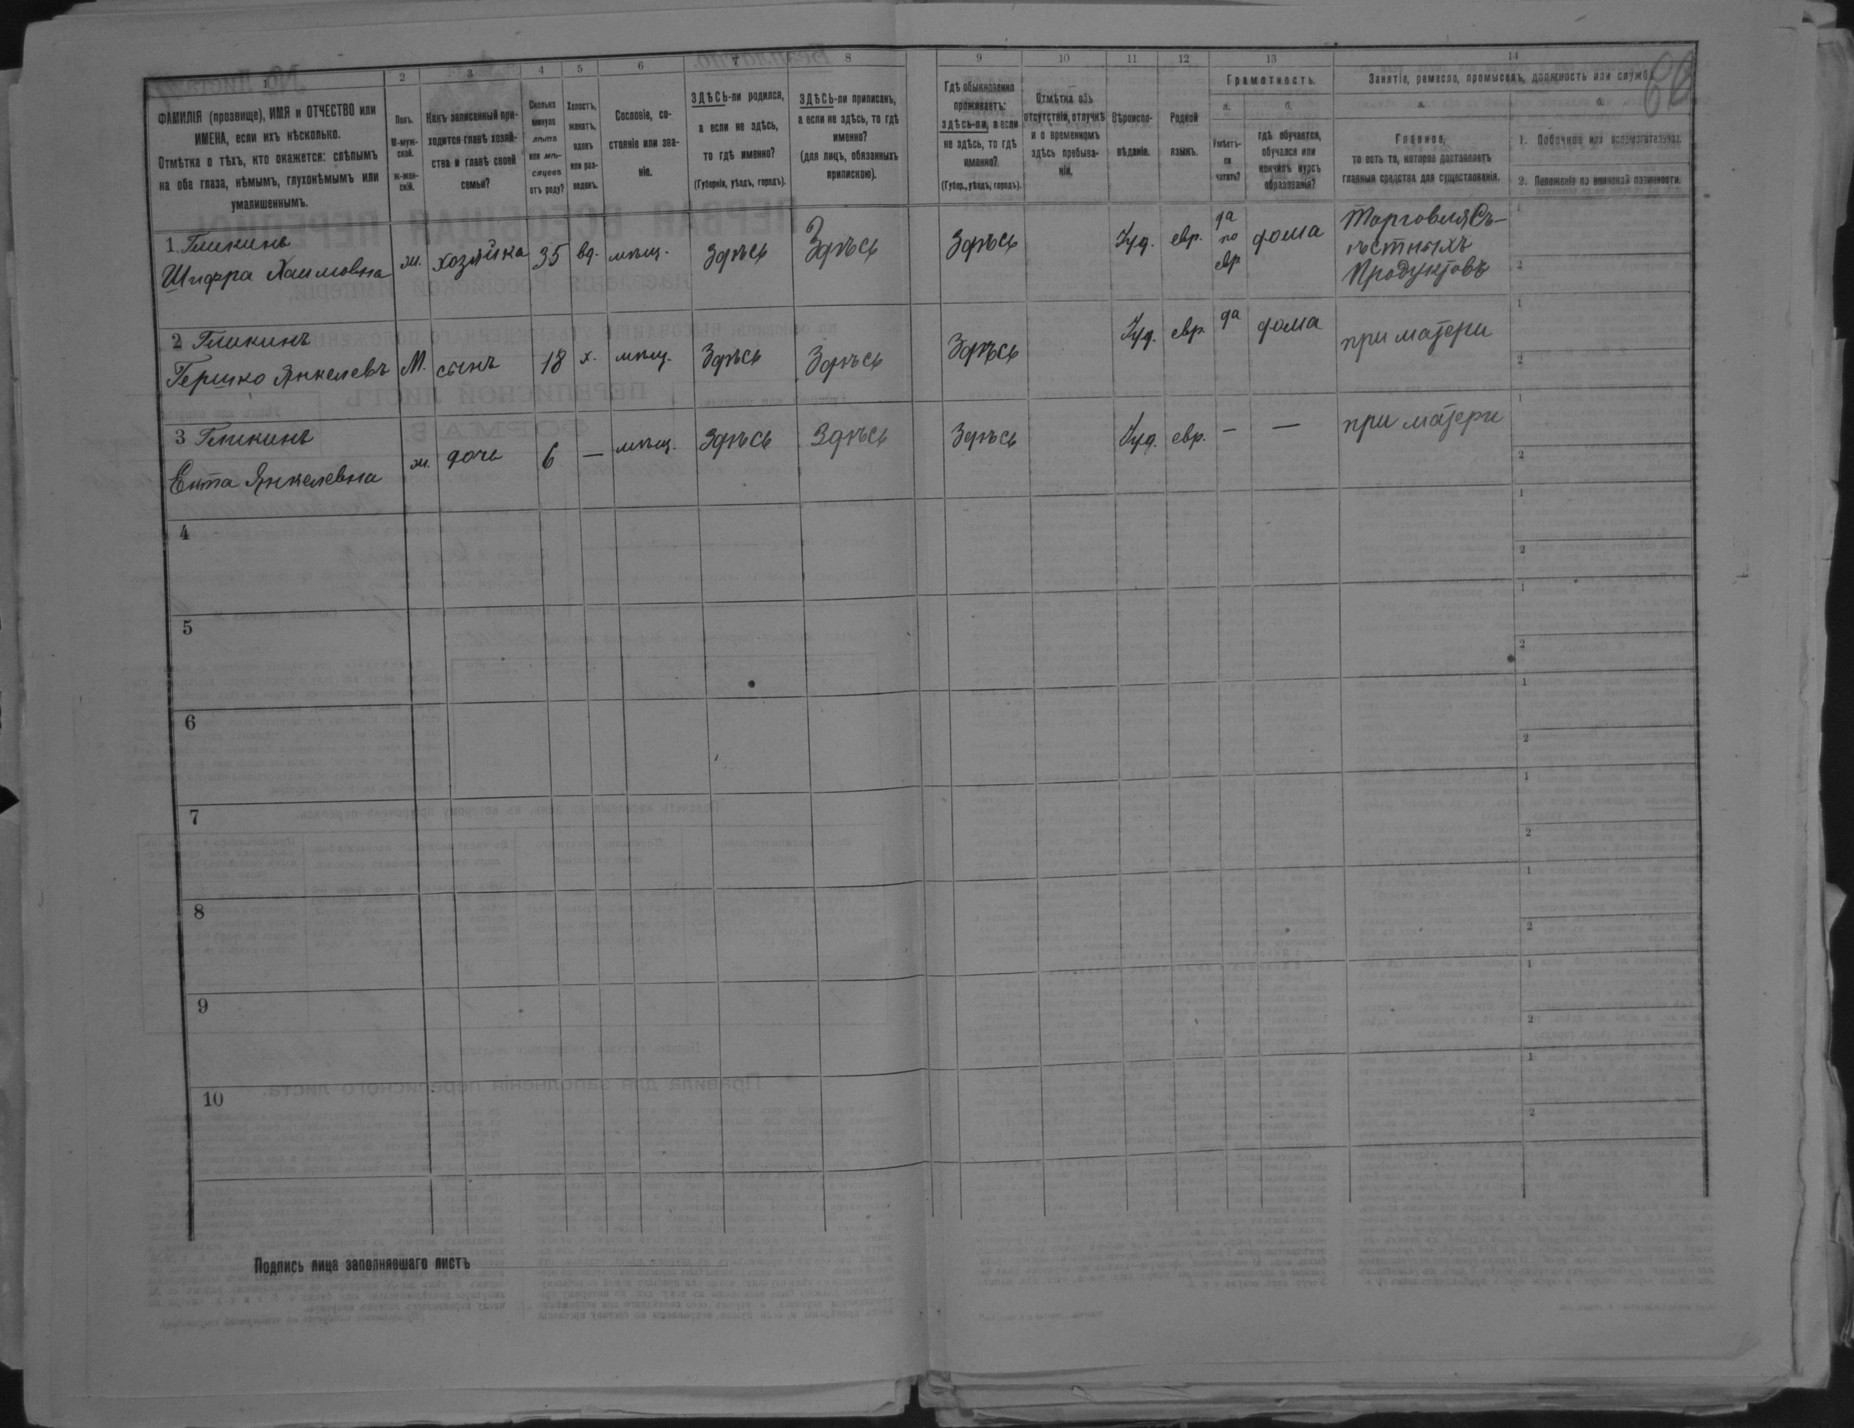 1 2 3 4 5 6 7 8 9 10 11 12 13 14
ФАМИЛІЯ (прозвище), ИМЯ и ОТЧЕСТВО или
ИМЕНА, если ихъ нѣсколько.
Отмѣтка о тѣхъ, кто окажется: слѣпымъ
на оба глаза, нѣмымъ, глухонѣмымъ или
умалишеннымъ.
Полъ.
М-муж-
ской.
Ж-жен-
скій.
Какъ записанный при-
ходится главѣ хозяй-
ства и главѣ своей
семьи?
Сколько
минуло
лѣтъ
или мѣ-
сяцевъ
отъ роду?
Холостъ,
женатъ,
вдовъ
или раз-
веденъ.
Сословіе, со-
стояніе или зва-
ніе.
ЗДѢСЬ-ли родился,
а если не здѣсь,
то гдѣ именно?
(Губернія, уѣздъ, городъ).
ЗДѢСЬ-ли приписанъ,
а если не здѣсь, то гдѣ
именно?
(для лицъ, обязанныхъ
припискою).
Гдѣ обыкновенно
проживаетъ:
здѣсь-ли, а если
не здѣсь, то гдѣ
именно?
(Губер., уѣздъ, городъ).
Отмѣтка объ
отсутствіи, отлучкѣ
и о временномъ
здѣсь пребыва-
ніи.
Вѣроиспо-
вѣданіе.
Родной
языкъ.
Грамотность.
а.
Умѣетъ-
ли
читать?
б.
гдѣ обучается,
обучался или
кончилъ курсъ
образованія?
Занятіе, ремесло, промыселъ, должность или служба.
а.
Главное,
то есть то, которое доставляетъ
главныя средства для существованія.
б.
1. Побочное или вспомогательное.
2. Положеніе по воинской повинности.
1 Гликинъ
Шифра Хаимовна ж. хозяйка 35 вд. мѣщ. Здѣсь Здѣсь Здѣсь Іуд. евр. да по евр дома Торговля Съ-
ѣстныхъ
Продуктовъ
1
2
2 Гликинъ
Гершко Янкелевъ М. сынъ 18 х. мѣщ. Здѣсь Здѣсь Здѣсь Іуд. евр. да дома при матери
1
2
3 Гликинъ
Ента Янкелевна ж. дочь 6 — мѣщ. Здѣсь Здѣсь Здѣсь Іуд. евр. — — при матери
1
2
4
1
2
5
1
2
6
1
2
7
1
2
8
1
2
9
1
2
10
1
2
Подпись лица заполнявшаго листъ